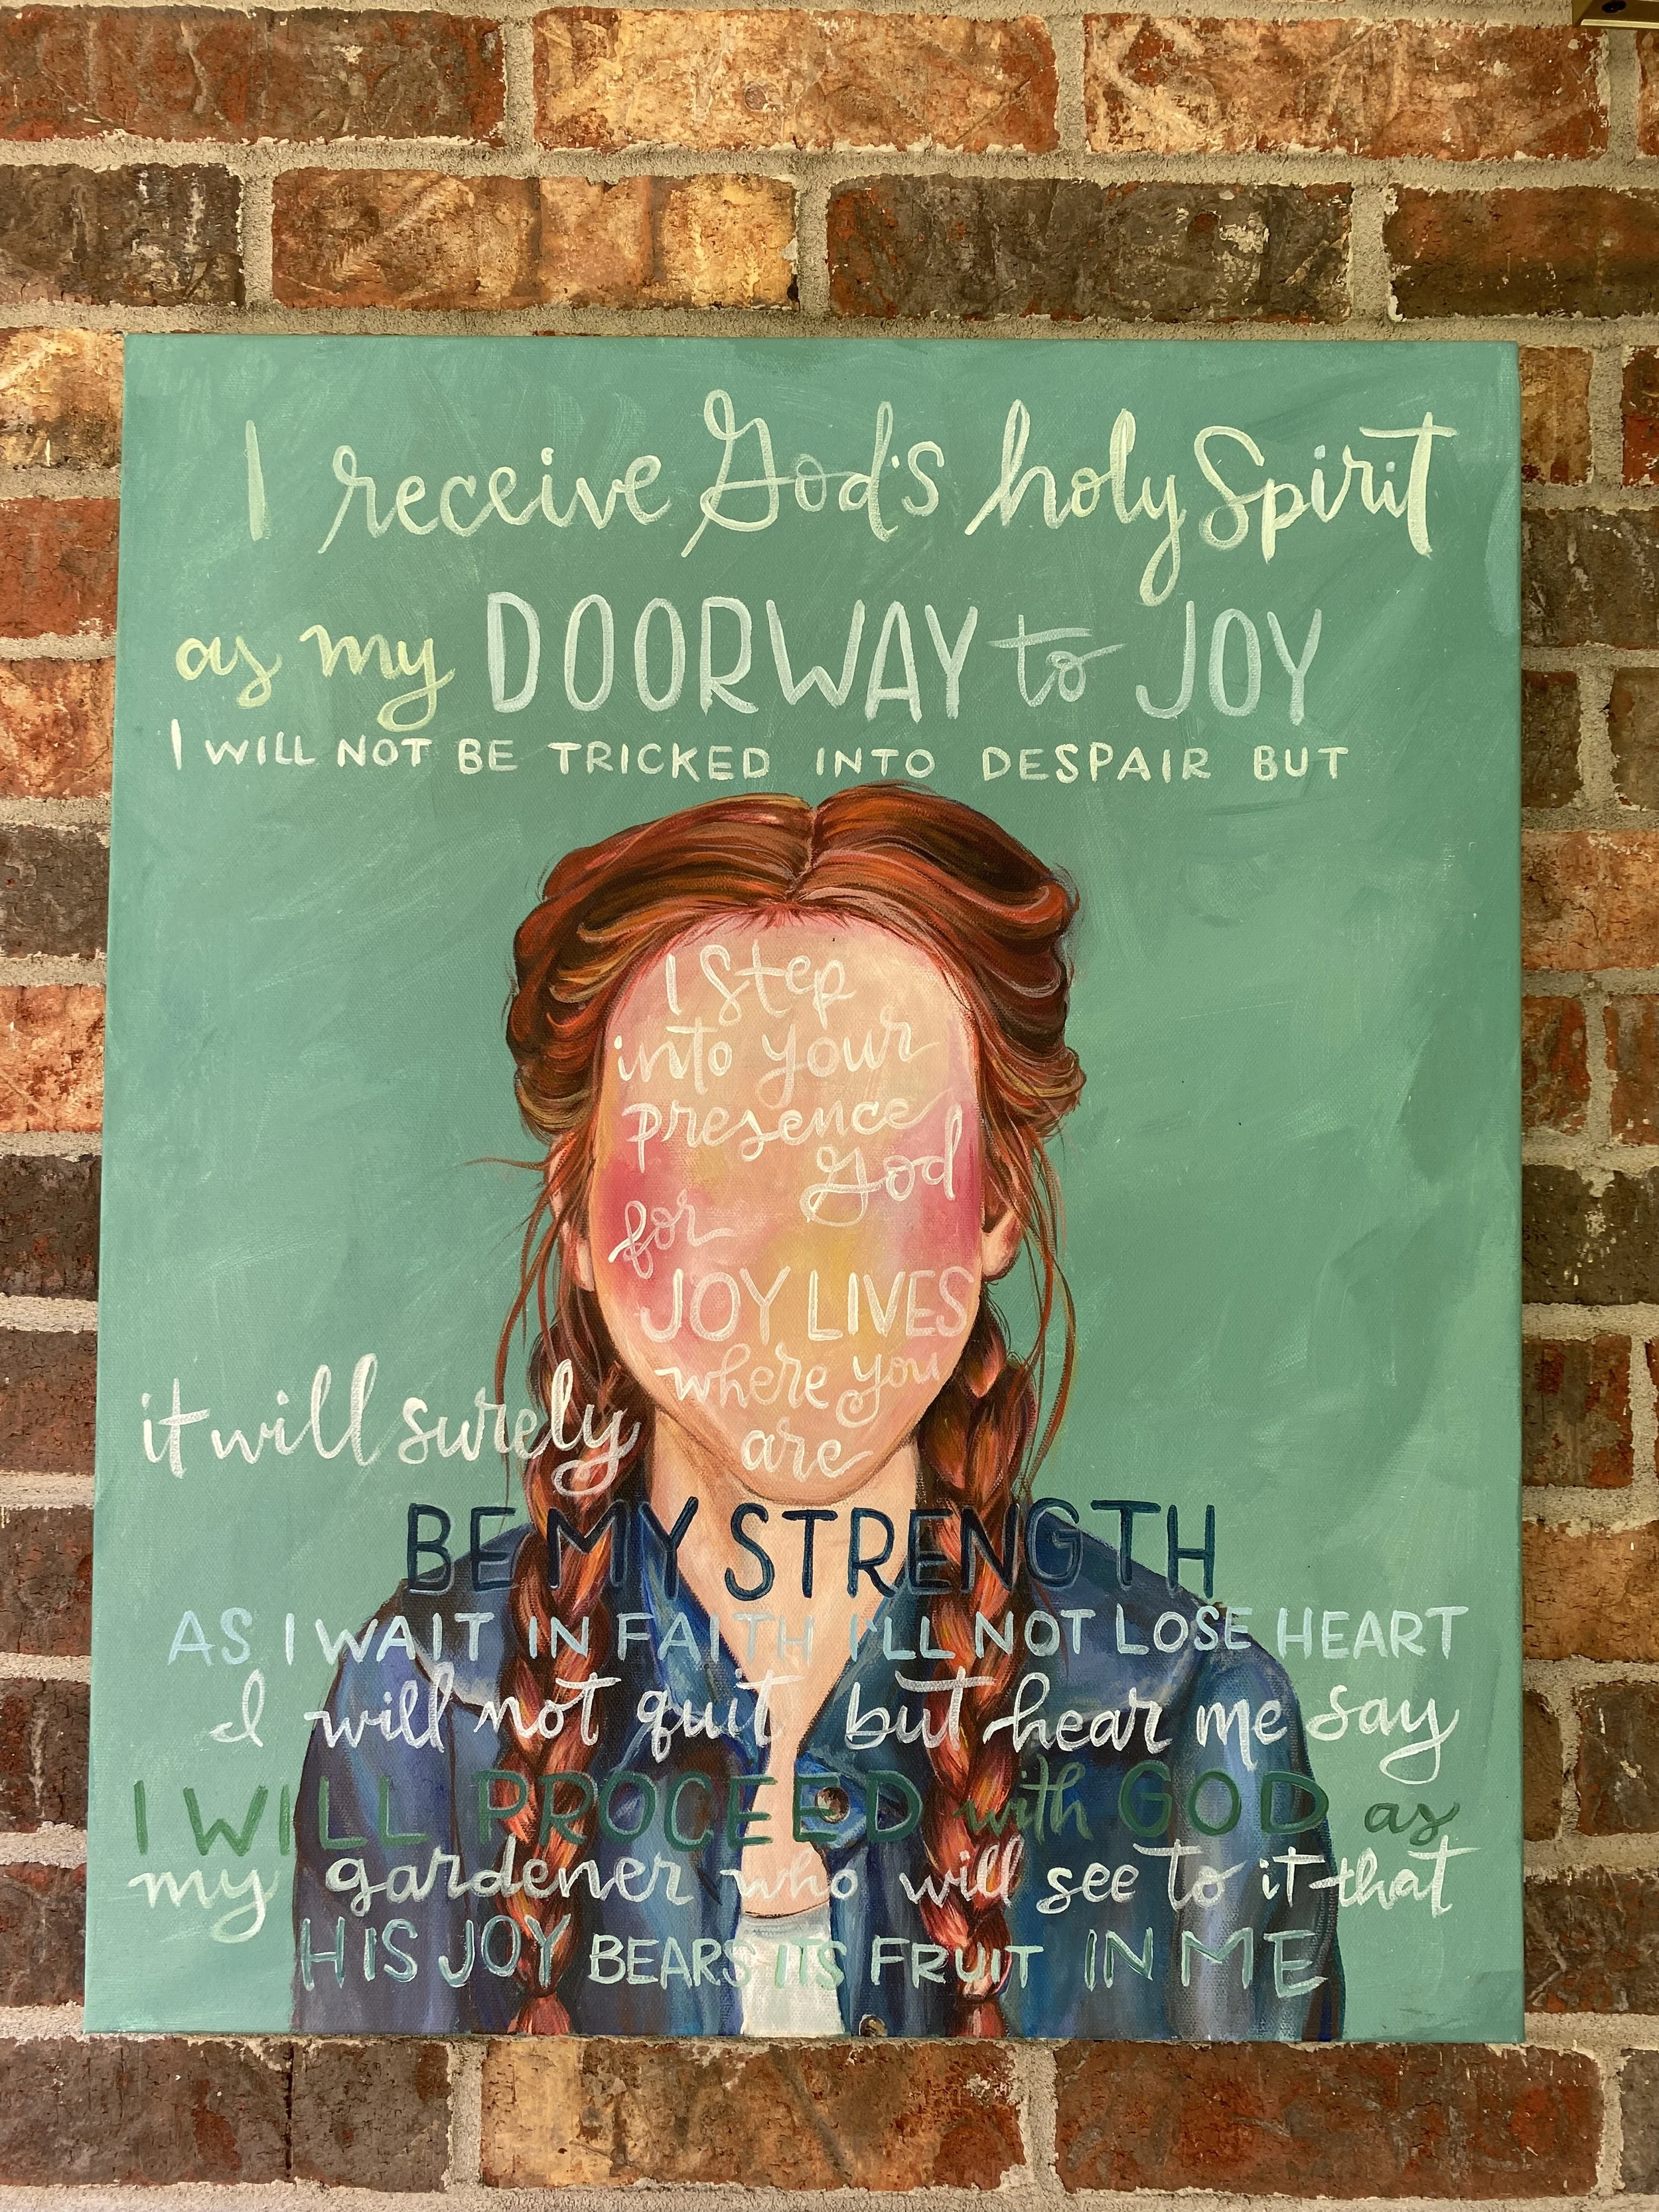 I receive God's holy Spirit
as my DOORWAY to JOY
I WILL NOT BE TRICKED INTO DESPAIR BUT
I Step
into your
presence
God
for
JOY LIVES
where you
are
it will surely
BE MY STRENGTH
AS I WAIT IN FAITH I'LL NOT LOSE HEART
I will not quit but hear me say
I WILL PROCEED with GOD as
my gardener who will see to it that
HIS JOY BEARS ITS FRUIT IN ME